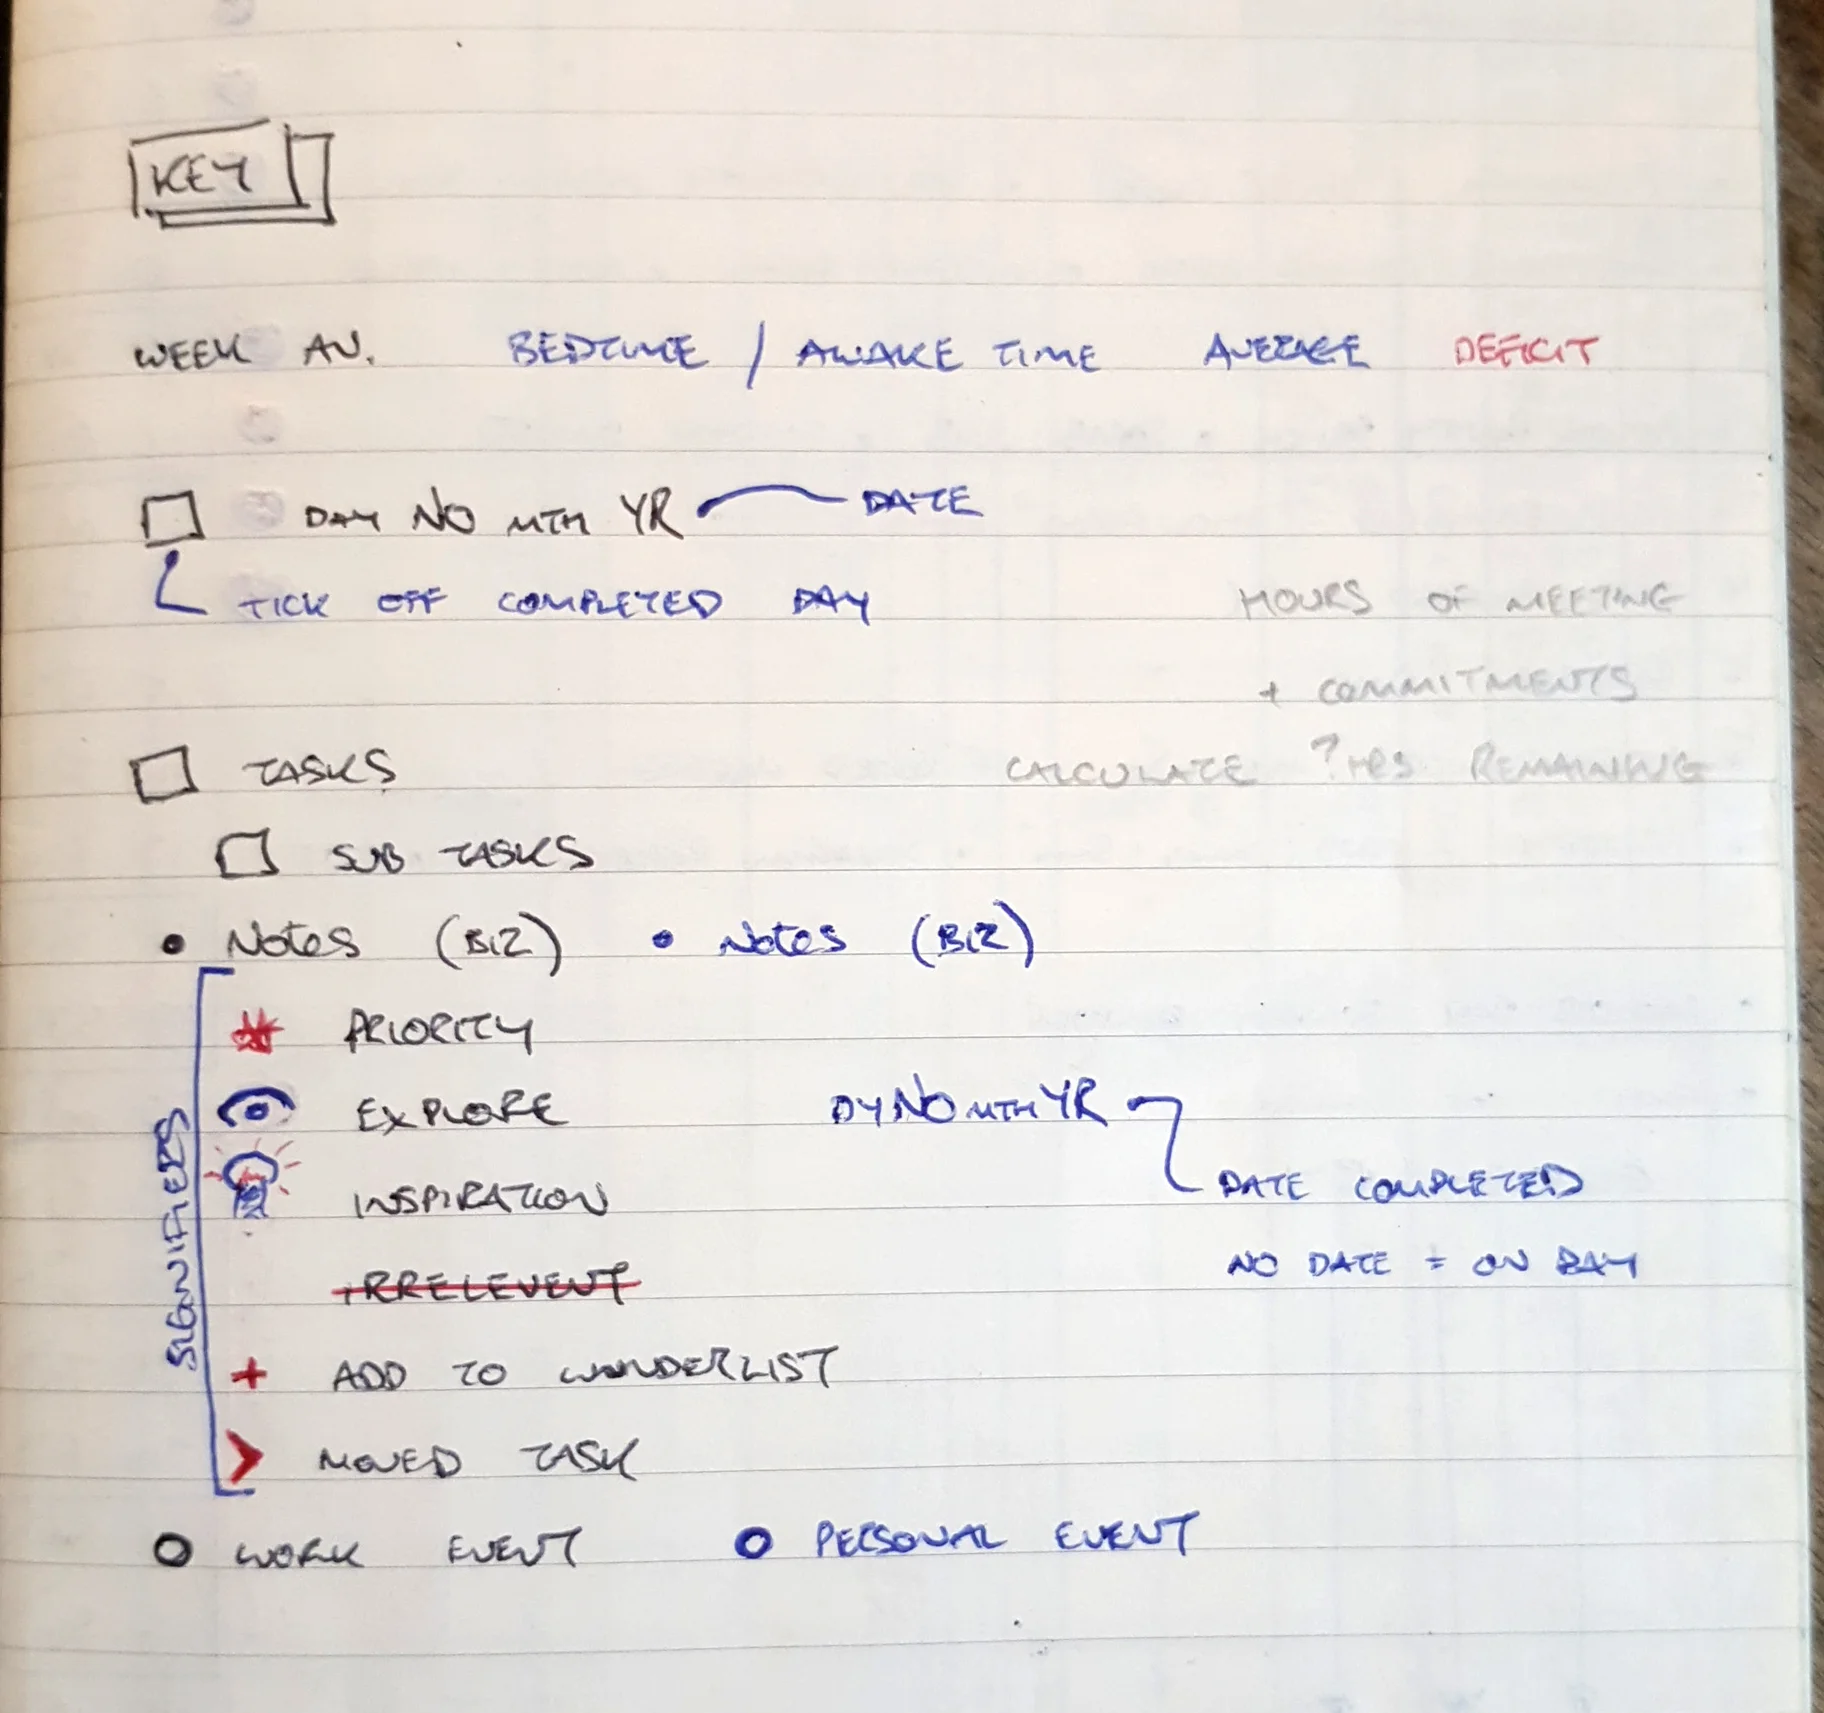 KEY
WEEK AV. BEDTIME / AWAKE TIME AVERAGE DEFICIT
DAY NO MTH YR DATE
TICK OFF COMPLETED DAY
HOURS OF MEETING
+ COMMITMENTS
TASKS
CALCULATE ? HRS REMAINING
SUB TASKS
• Notes (BIZ) • Notes (BIZ)
SIGNIFIERS
PRIORITY
EXPLORE
DY NO MTH YR
INSPIRATION
DATE COMPLETED
NO DATE = ON DAY
IRRELEVENT
+ ADD TO WUNDERLIST
> MOVED TASK
WORK EVENT
PERSONAL EVENT